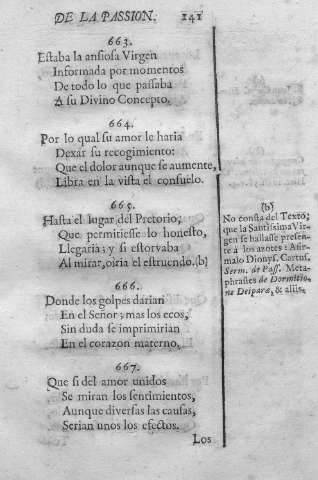 DE LA PASSION. 141
663.
Estaba la ansiosa Virgen
Informada por momentos
De todo lo que passaba
A su Divino Concepto,
664.
Por lo qual su amor le haria
Dexar su recogimiento:
Que el dolor aunque se aumente,
Libra en la vista el consuelo.
665.
Hasta el lugar del Pretorio,
Que permitiesse lo honesto,
Llegaria; y si estorvaba
Al mirar, oìria el estruendo.(b)
666.
Donde los golpes darian
En el Señor; mas los ecos,
Sin duda se imprimirian
En el corazon materno.
667.
Que si del amor unidos
Se miran los sentimientos,
Aunque diversas las causas,
Serian unos los efectos.
Los
(b)
No consta del Texto;
que la Santissima Vir-
gen se hallasse presen-
te à los azotes: Afir-
malo Dionys. Cartus.
Serm. de Pass. Meta-
phrastes de Dormitio-
ne Deiparæ, & alijs.